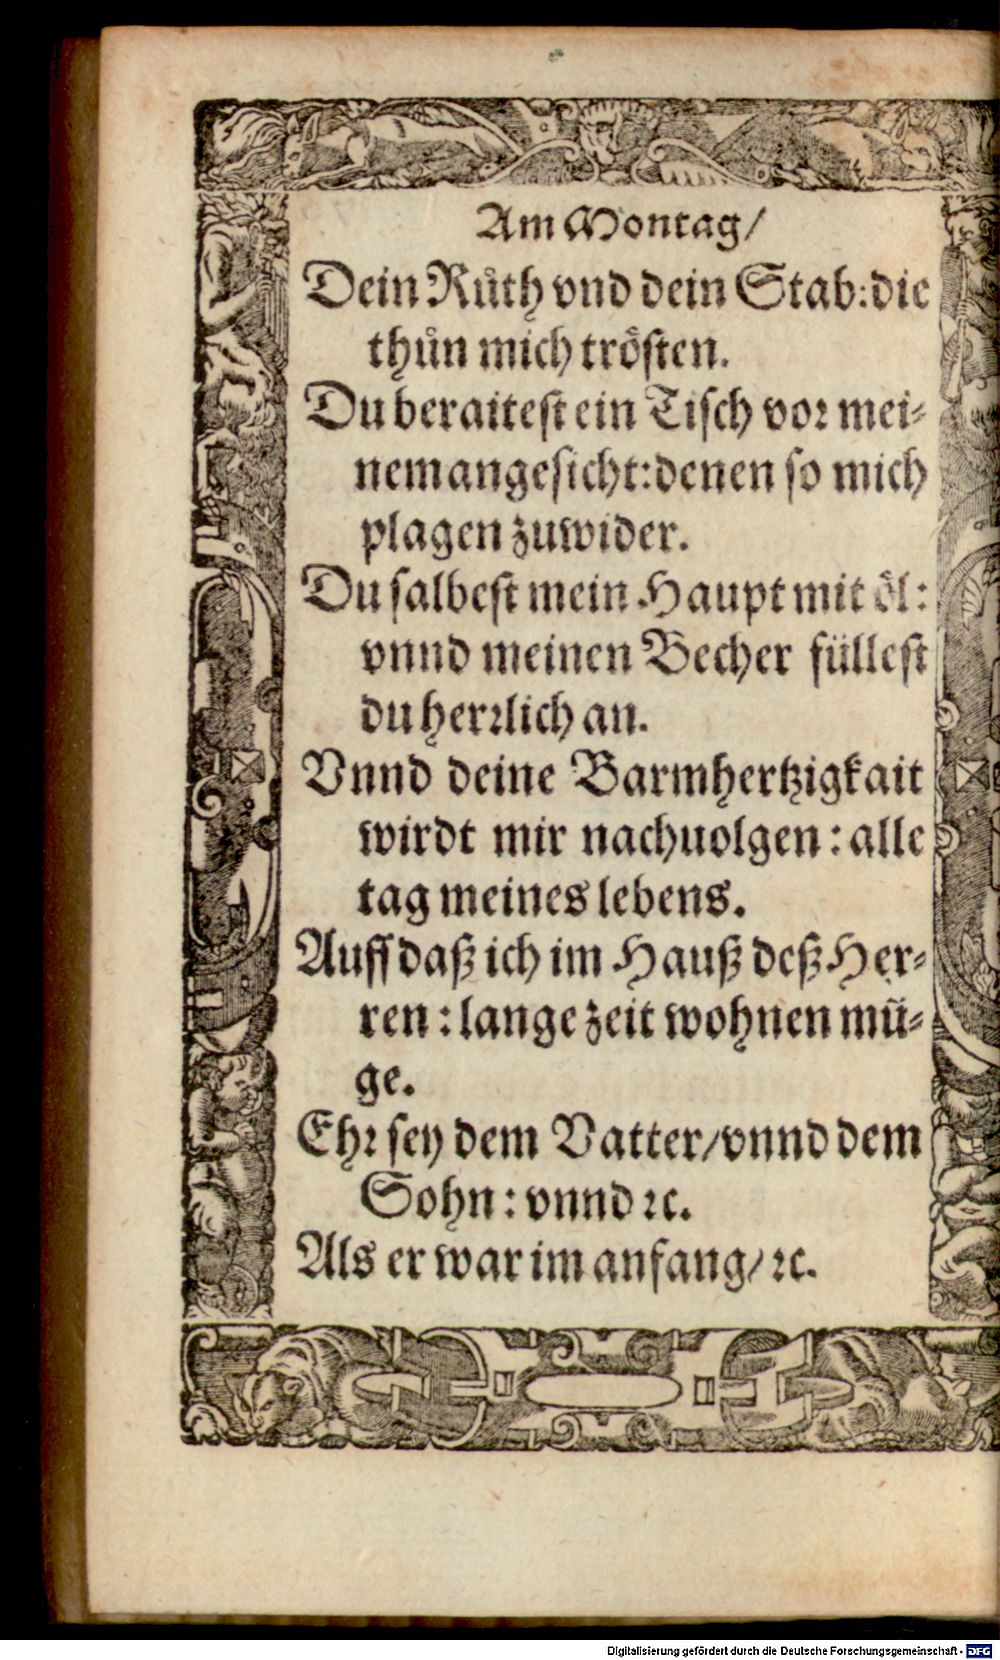 Am Montag/
Dein Růth vnd dein Stab: die
thůn mich trösten.
Du beraitest ein Tisch vor mei-
nem angesicht: denen so mich
plagen zuwider.
Du salbest mein Haupt mit öl:
vnnd meinen Becher füllest
du herrlich an.
Vnnd deine Barmhertzigkait
wirdt mir nachuolgen: alle
tag meines lebens.
Auff daß ich im Hauß deß Her-
ren: lange zeit wohnen mü-
ge.
Ehr sey dem Vatter/vnnd dem
Sohn: vnnd ꝛc.
Als er war im anfang/ꝛc.
Digitalisierung gefördert durch die Deutsche Forschungsgemeinschaft - DFG